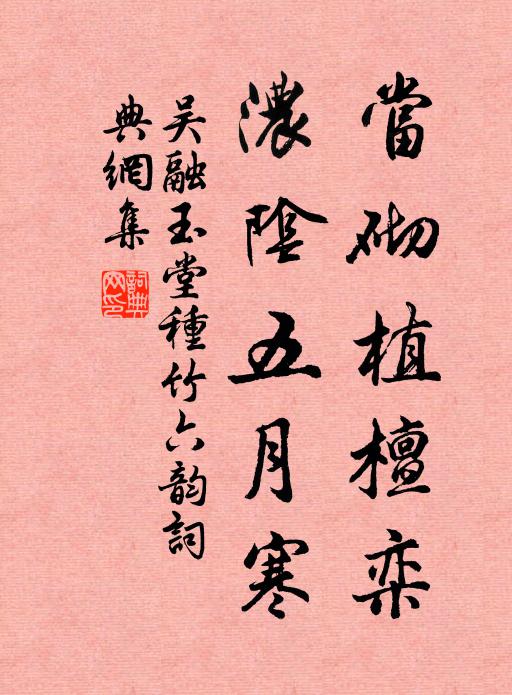 當砌植檀栾
濃陰五月寒
吴融玉堂種竹六韵詞
典網集
詞典網印